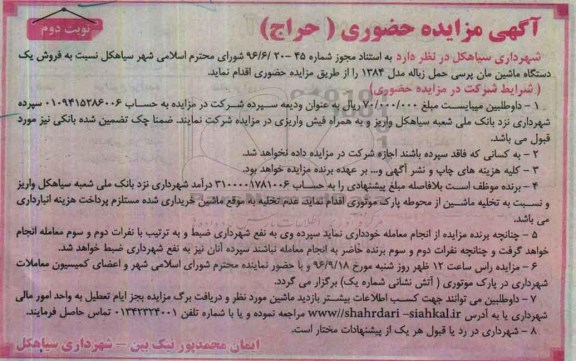 نوبت دوم
آگهی مزایده حضوری ( حراج )
شهرداری سیاهکل در نظر دارد به استناد مجوز شماره ۴۵ -۲۰ ۹۶/۶/ شورای محترم اسلامی شهر سیاهکل نسبت به فروش یک
دستگاه ماشین مان پرسی حمل زباله مدل ۱۳۸۴ را از طریق مزایده حضوری اقدام نماید.
( شرایط شرکت در مزایده حضوری)
۱ – داوطلبین میبایست مبلغ ۷۰/۰۰۰/۰۰۰ ریال به عنوان ودیعه سپرده شرکت در مزایده به حساب ۰۱۰۹۴۱۵۲۸۶۰۰۶ سپرده
شهرداری نزد بانک ملی شعبه سیاهکل واریز و به همراه فیش واریزی در مزایده شرکت نمایند. ضمنا چک تضمین شده بانکی نیز مورد
قبول می باشد.
۲ – به کسانی که فاقد سپرده باشند اجازه شرکت در مزایده داده نخواهد شد.
۳ – کلیه هزینه های چاپ و نشر آگهی و... بر عهده برنده مزایده خواهد بود.
۴ – برنده موظف است بلافاصله مبلغ پیشنهادی را به حساب ۳۱۰۰۰۰۱۷۸۱۰۰۶ درآمد شهرداری نزد بانک ملی شعبه سیاهکل واریز
و نسبت به تخلیه ماشین از محوطه پارک موتوری اقدام نماید. عدم تخلیه به موقع ماشین خریداری شده مستلزم پرداخت هزینه انبارداری
می باشد.
۵ – چنانچه برنده مزایده از انجام معامله خودداری نماید سپرده وی به نفع شهرداری ضبط و به ترتیب با نفرات دوم و سوم معامله انجام
خواهد گرفت و چنانچه نفرات دوم و سوم برنده حاضر به انجام معامله نباشند سپرده آنان نیز به نفع شهرداری ضبط خواهد شد.
۶ – مزایده راس ساعت ۱۲ ظهر روز شنبه مورخ ۹۶/۹/۱۸ و با حضور نماینده محترم شورای اسلامی شهر و اعضای کمیسیون معاملات
شهرداری در پارک موتوری ( آتش نشانی شماره یک) برگزار می گردد.
۷ – داوطلبین می توانند جهت کسب اطلاعات بیشتر بازدید ماشین مورد نظر و دریافت برگ مزایده بجز ایام تعطیل به واحد امور مالی
شهرداری یا به آدرس www//shahrdari -siahkal.ir مراجعه نموده و یا با شماره تلفن ۰۱۳۴۲۳۲۴۰۰۱ تماس حاصل فرمایند.
۸ – شهرداری در رد یا قبول هر یک از پیشنهادات مختار است.
ایمان محمدپور نیک بین – شهرداری سیاهکل